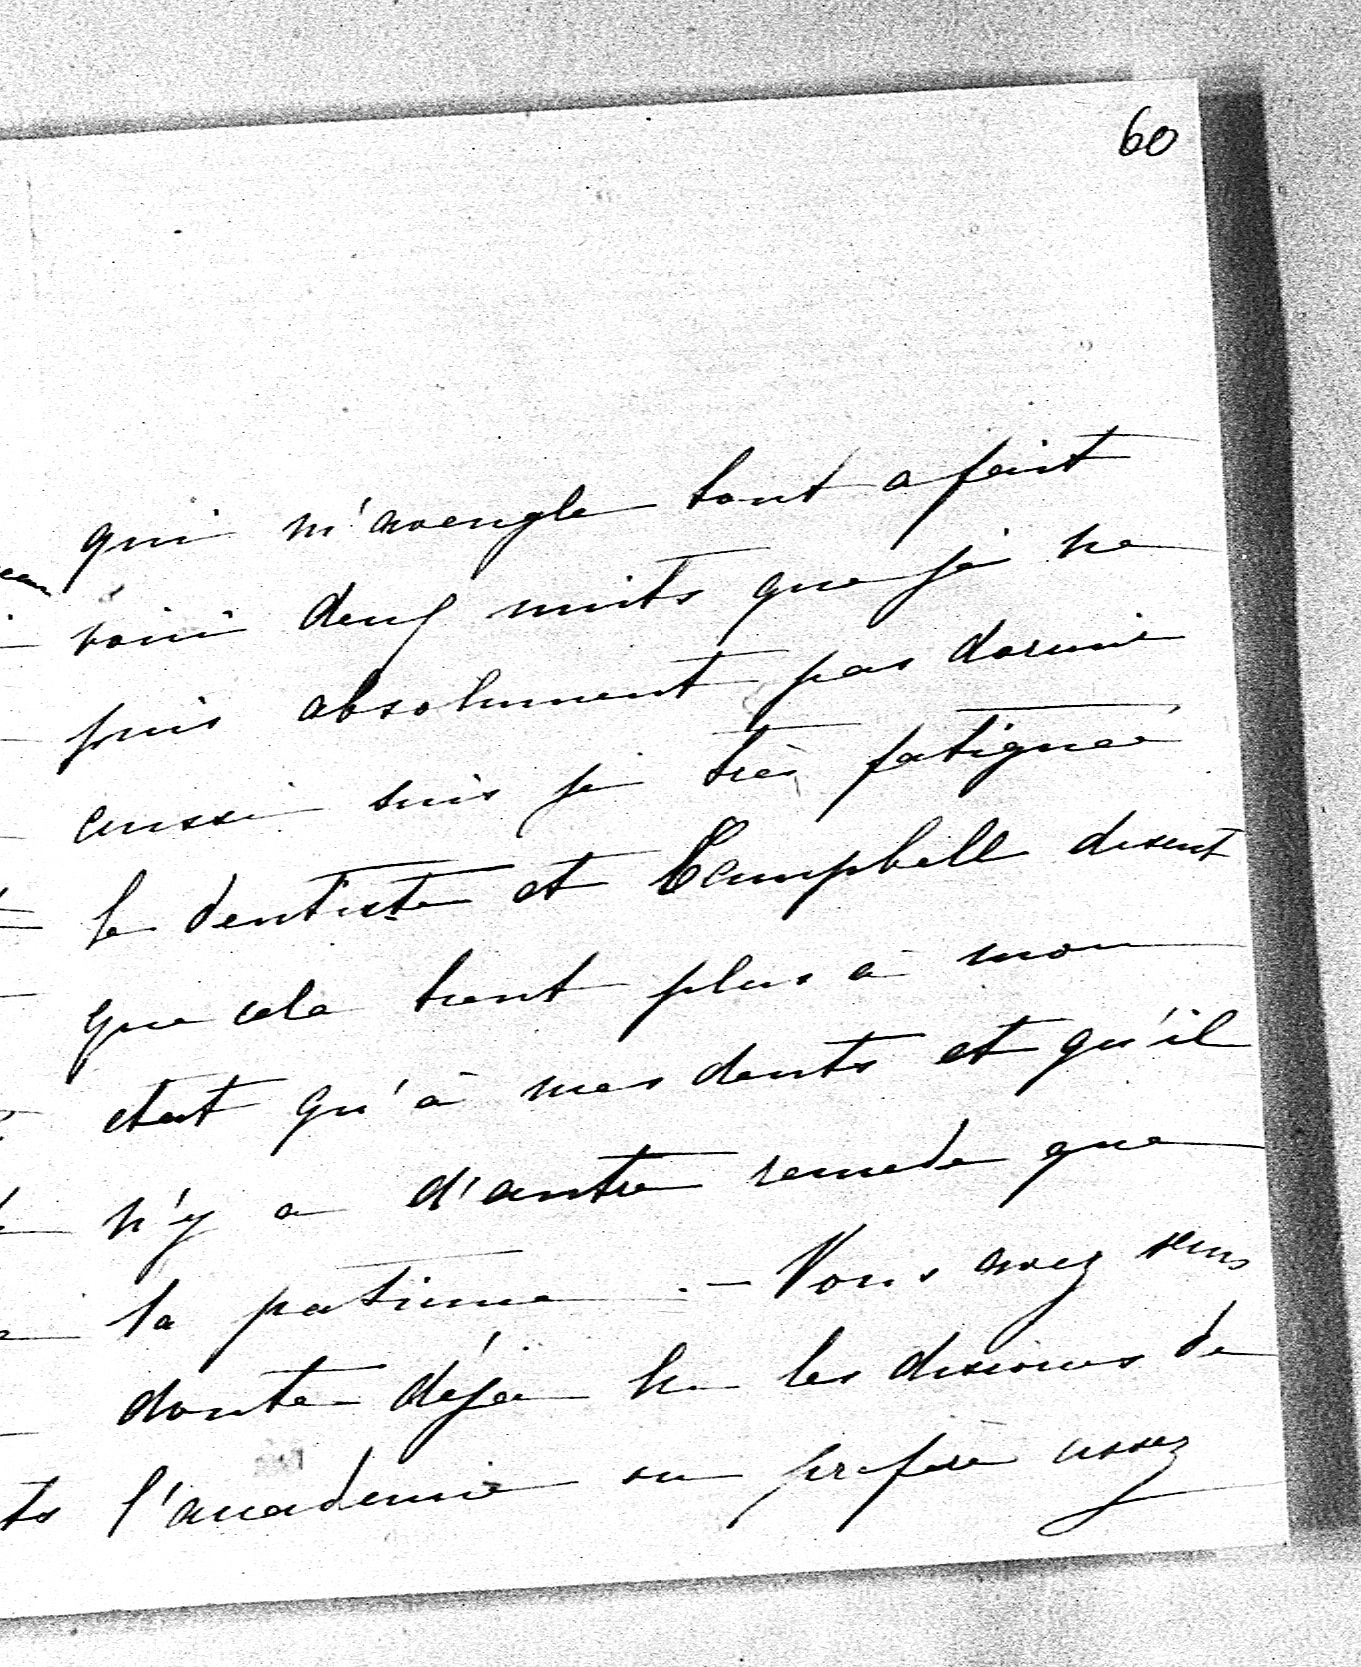 60
qui m'aveugle tout a fait
voici deux nuits que je ne
puis absolument pas dormir
aussi suis je très fatiguée
le dentiste et Campbell disent
que cela tient plus à mon
etat qu'à mes dents et qu'il
n'y a d'autre remede que
la patience. - Vous avez sans
doute déjà lu les discours de
l'academie on préfère assez